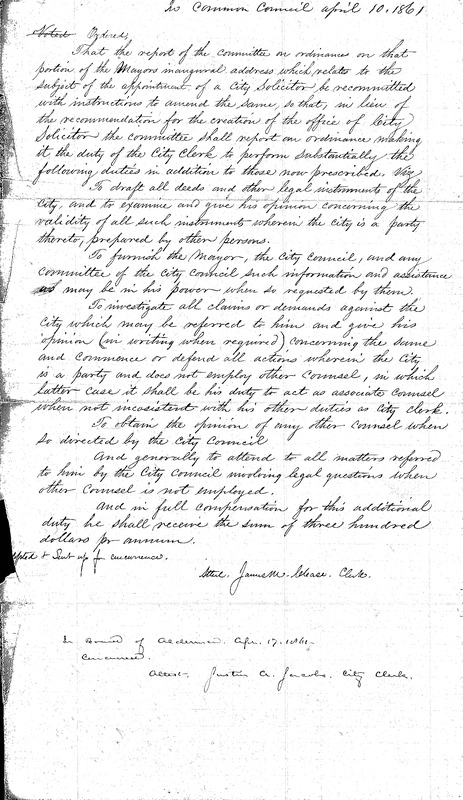 In Common Council April 10, 1861
Voted Ordered,
That the report of the committee on ordinances on that
portion of the Mayors inaugural address which relates to the
subject of the appointment of a City Solicitor be recommitted
with instructions to amend the same, so that, in lieu of
the recommendation for the creation of the office of City
Solicitor the committee shall report an ordinance making
it the duty of the City Clerk to perform substantially the
following duties in addition to those now prescribed. Viz
To draft all deeds and other legal instruments of the
City, and to examine and give his opinion concerning the
validity of all such instruments wherein the City is a party
thereto, prepared by other persons.
To furnish the Mayor, the City Council, and any
committee of the City Council such information and assistance
as may be in his power when so requested by them.
To investigate all claims or demands against the
City which may be referred to him and give his
opinion (in writing when required) concerning the same
and commence or defend all actions wherein the City
is a party and does not employ other counsel, in which
latter case it shall be his duty to act as associate counsel
when not inconsistent with his other duties as City Clerk.
To obtain the opinion of any other counsel when
so directed by the City Council
And generally to attend to all matters referred
to him by the City Council involving legal questions when
other counsel is not employed.
And in full compensation for this additional
duty he shall receive the sum of three hundred
dollars pr annum.
opted & Sent up for concurrence.
Attest. James M. Chase. Clerk.
In Board of Aldermen. Apr. 17. 1861
Concurred.
Attest. Justin A. Jacobs. City Clerk.